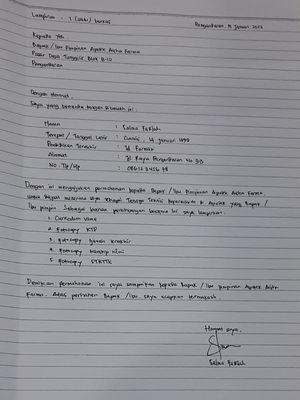 Lampiran : 1 (satu) berkas
Pangandaran, 14 Januari 2022
Kepada Yth
Bapak / Ibu Pimpinan Apotek Aisha Farma
Pasar Desa Tunggilis Blok B-10
Pangandaran
Dengan Hormat,
Saya yang bertanda tangan dibawah ini :
Nama : Salma
Tempat / Tanggal Lahir : Ciamis, 14 Januari 1999
Pendidikan Terakhir : D3 Farmasi
Alamat : Jl. Raya Pangandaran No 313
NO. Tlp/Hp :
Dengan ini mengajukan permohonan kepada Bapak / Ibu Pimpinan Apotek Aisha Farma.
Untuk dapat Tenaga Teknis Kefarmasian di Apotek yang Bapak /
Ibu pimpin. Sebagai bahan pertimbangan bersama ini saya lampirkan :
1. Curriculum Vitae
2. Fotocopy KTP
3. Fotocopy Ijazah terakhir
4. Fotocopy transkip nilai
5. Fotocopy STRTTK
Demikian permohonan ini saya sampaikan kepada Bapak / Ibu pimpinan Apotek Aisha
Farma. Atas perhatian Bapak / Ibu, saya ucapkan terimakasih.
Hormat saya,
Salma